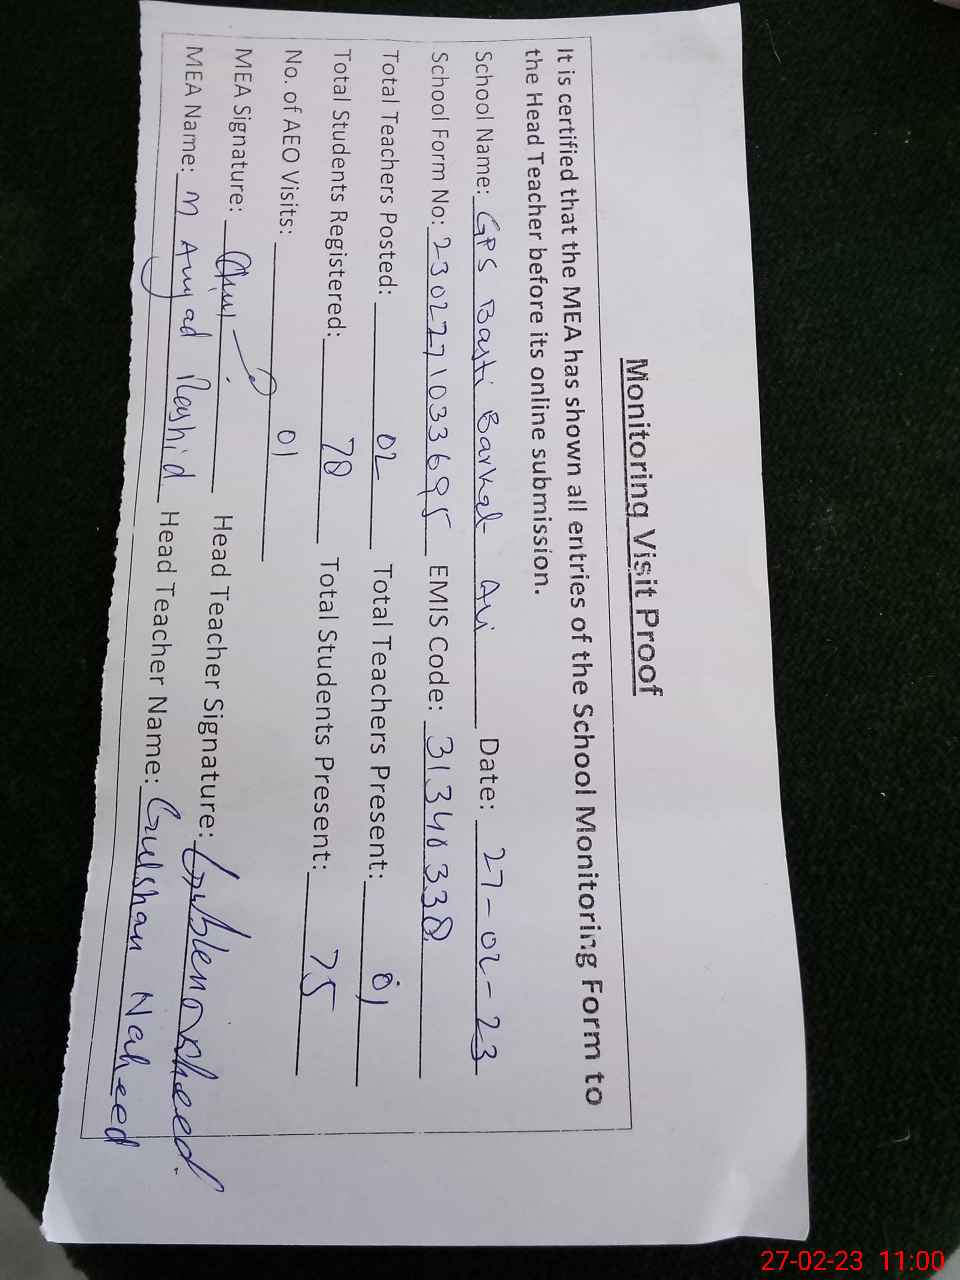 Monitoring Visit Proof
It is certified that the MEA has shown all entries of the School Monitoring Form to
the Head Teacher before its online submission.
School Name: GPS Basti Barkat Ali Date: 27-02-23
School Form No: 2302271033695 EMIS Code: 31340338
Total Teachers Posted: 02 Total Teachers Present: 01
Total Students Registered: 78 Total Students Present: 75
No. of AEO Visits: 01
MEA Signature: Head Teacher Signature:
MEA Name: M Amjad Rashid Head Teacher Name: Gulshan Naheed
27-02-23 11:00